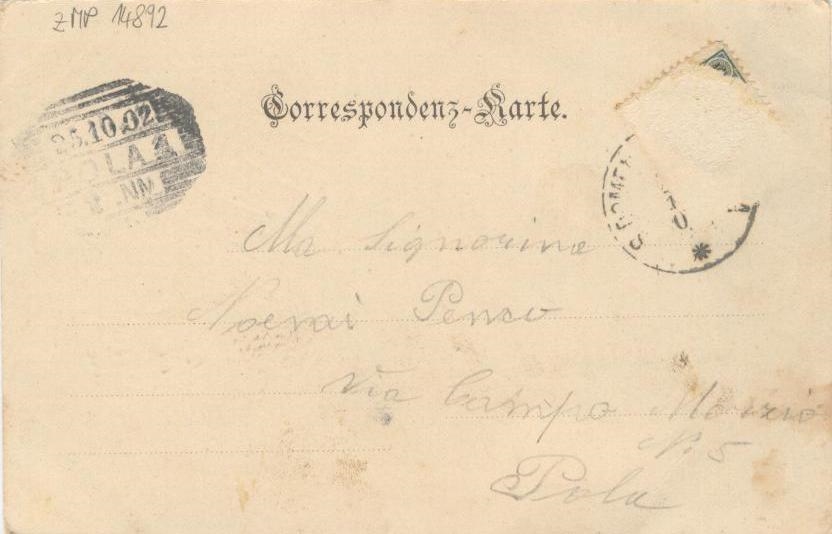 ZMP 14892
Correspondenz-Karte.
25.10.02
POLA 1
NM
Signorina
Noemi Penso
Via Campo Marzio
N. 5
Pola